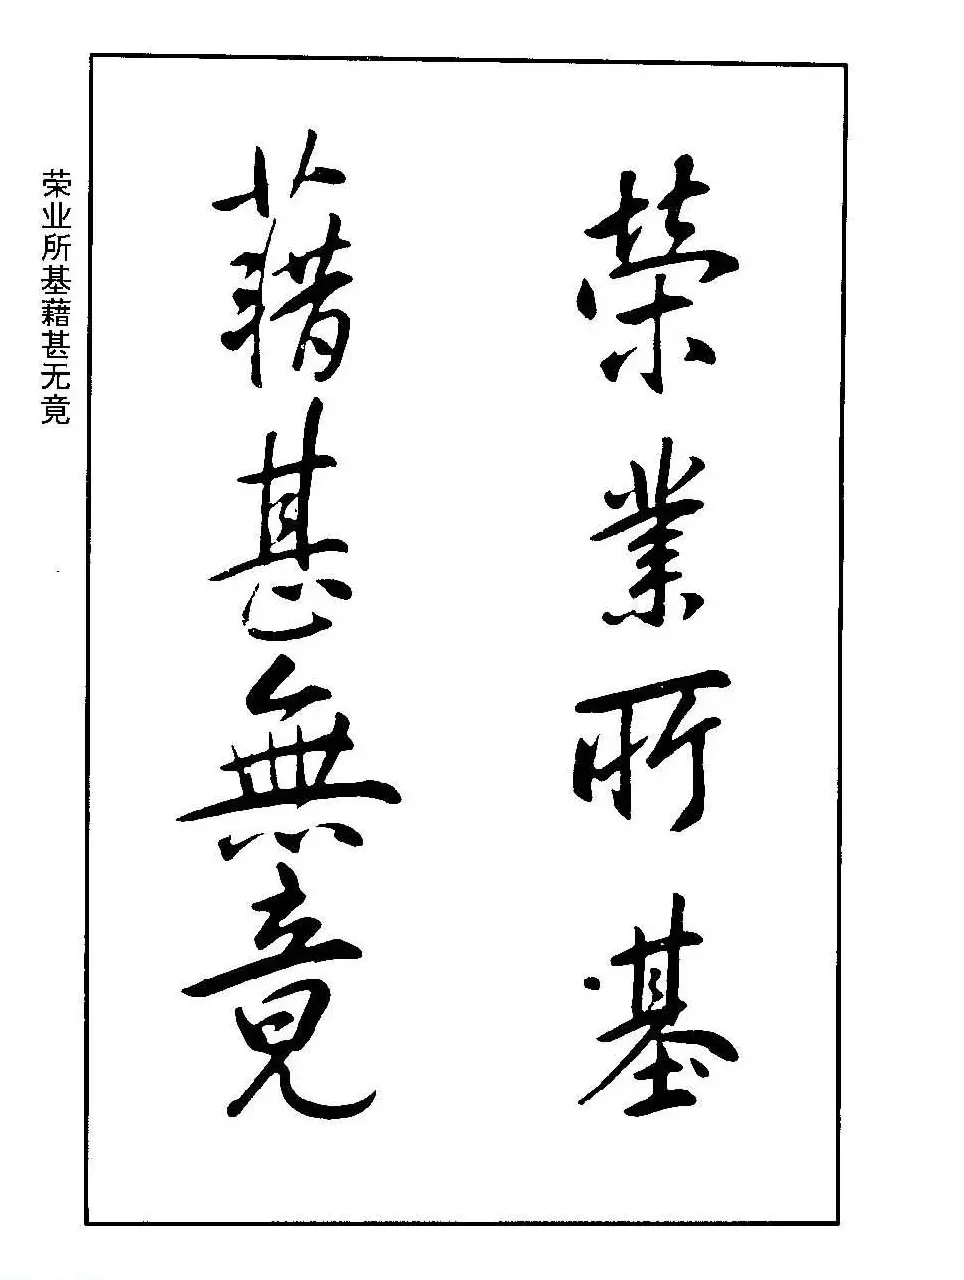 榮業所基
藉甚無竟
荣业所基藉甚无竟